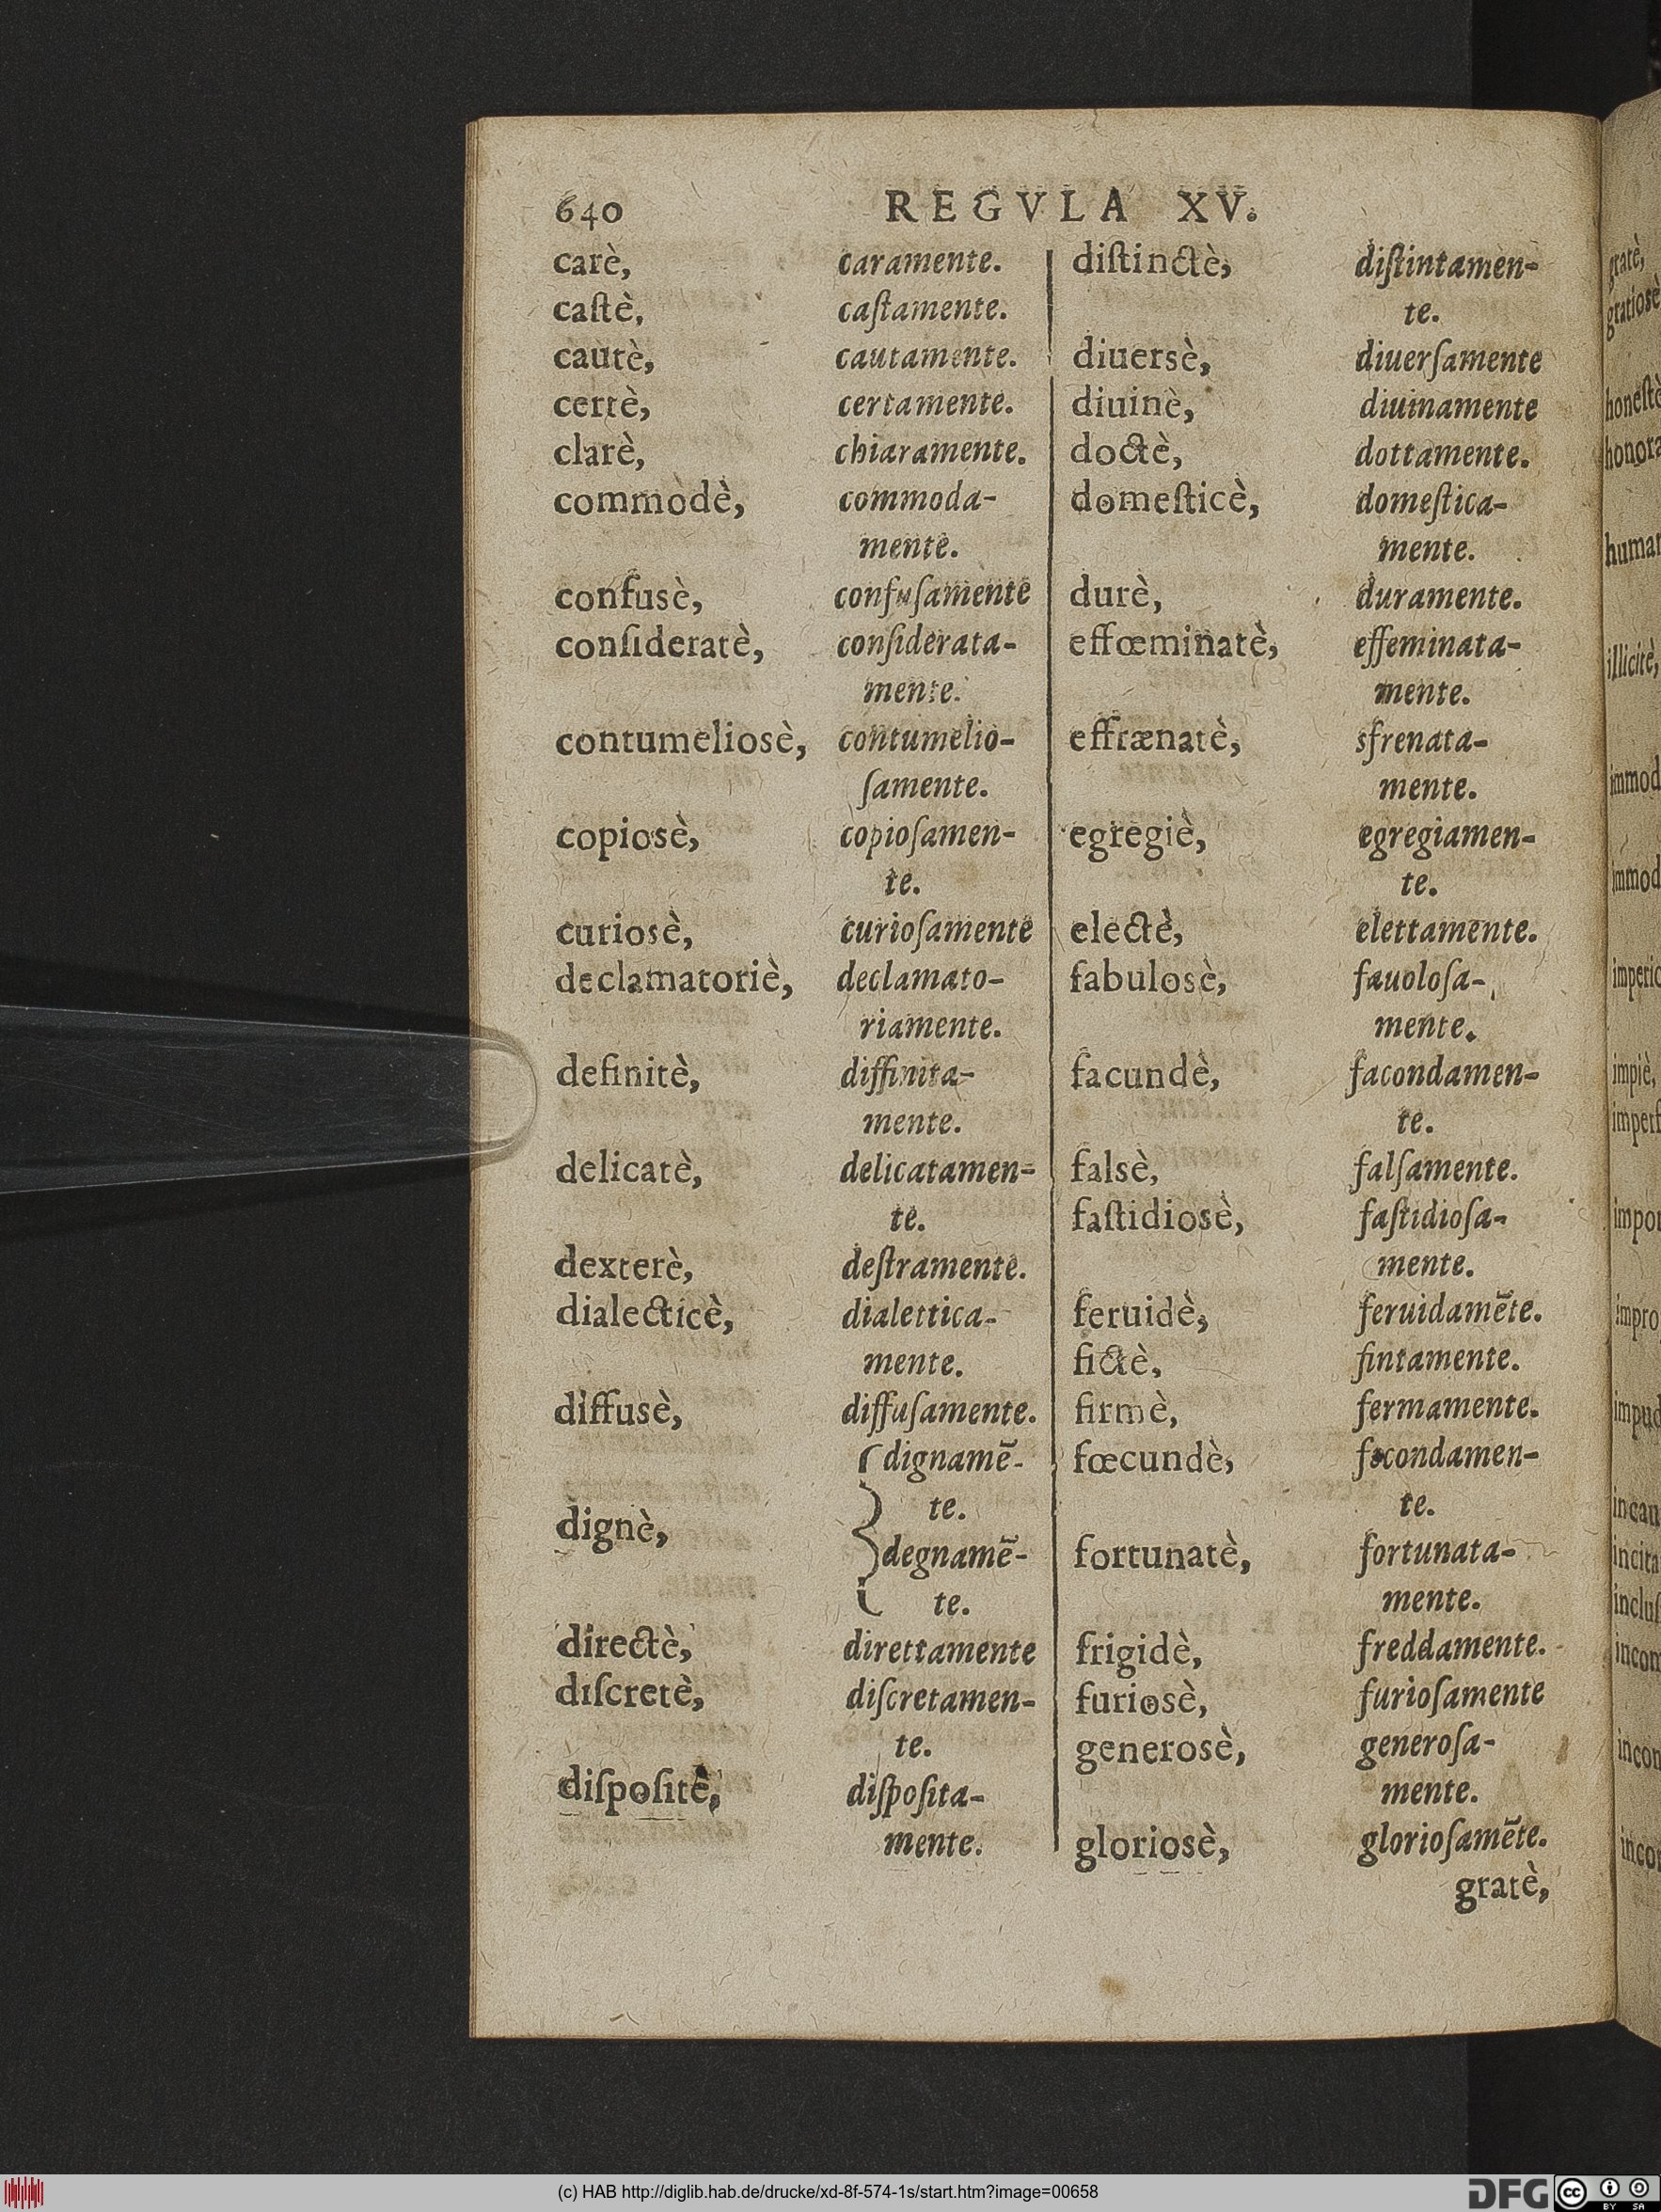 640 REGVLA XV.
carè, caramente.
caſtè, caſtamente.
cautè, cautamente.
certè, certamente.
clarè, chiaramente.
commodè, commoda-
mente.
confusè, confuſamente
conſideratè, conſiderata-
mente.
contumeliosè, contumelio-
ſamente.
copiosè, copioſamen-
te.
curiosè, curioſamente
declamatoriè, declamato-
riamente.
definitè, diffinita-
mente.
delicatè, delicatamen-
te.
dexterè, deſtramente.
dialecticè, dialettica-
mente.
diffusè, diffuſamente.
dignamē-
te.
dignè,
degnamē-
te.
directè, direttamente
diſcretè, diſcretamen-
te.
diſpoſitè, diſpoſita-
mente.
diſtinctè, diſtintamen-
te.
diuersè, diuerſamente
diuinè, diuinamente
doctè, dottamente.
domeſticè, domeſtica-
mente.
durè, duramente.
effœminatè, effeminata-
mente.
effrænatè, sfrenata-
mente.
egregiè, egregiamen-
te.
electè, elettamente.
fabulosè, fauoloſa-
mente.
facundè, facondamen-
te.
falsè, falſamente.
faſtidiosè, faſtidioſa-
mente.
feruidè, feruidamēte.
fictè, fintamente.
firmè, fermamente.
fœcundè, fecondamen-
te.
fortunatè, fortunata-
mente.
frigidè, freddamente.
furiosè, furioſamente
generosè, generoſa-
mente.
gloriosè, glorioſamēte.
gratè,
gratè,
gratiosè
honeſtè
honora
human
illicitè,
immod
immod
imperio
impiè,
imperf
impor
impro
impud
incau
incita
incluſ
incom
incon
incor
(c) HAB http://diglib.hab.de/drucke/xd-8f-574-1s/start.htm?image=00658
DFG
cc BY SA